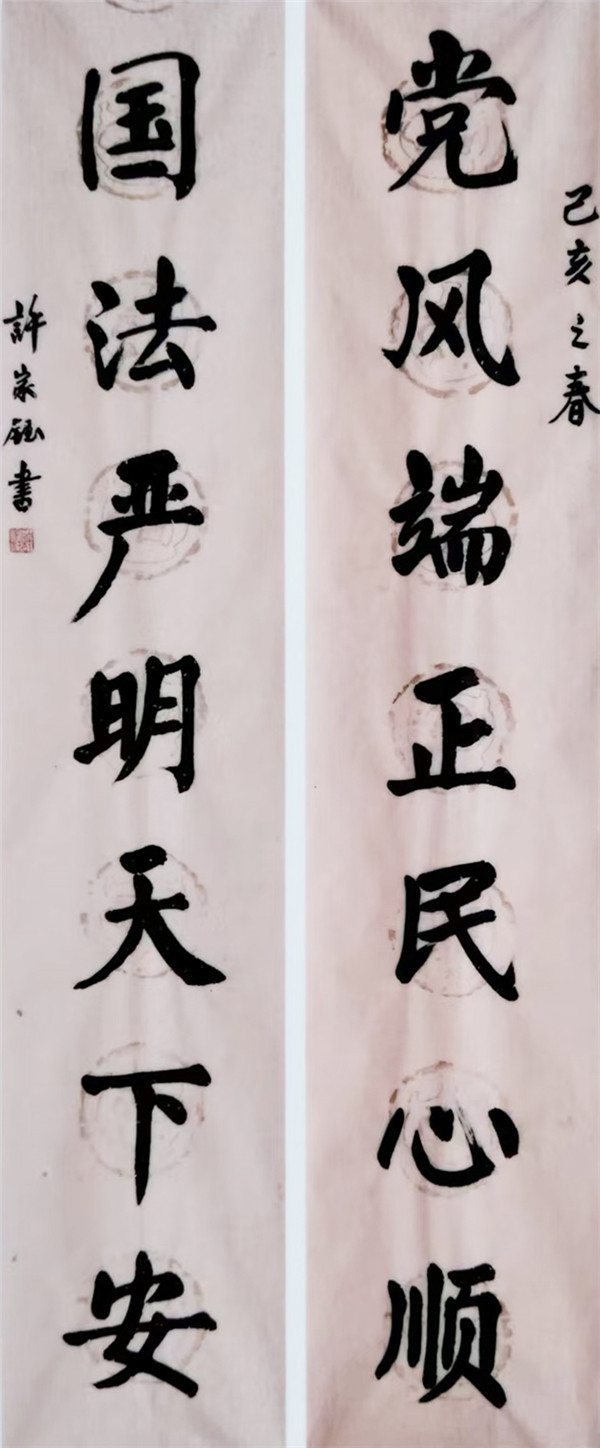 己亥之春
党风端正民心顺
国法严明天下安
許家钰書